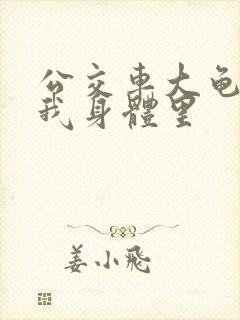 公交車大龟
我身體里
姜小飛